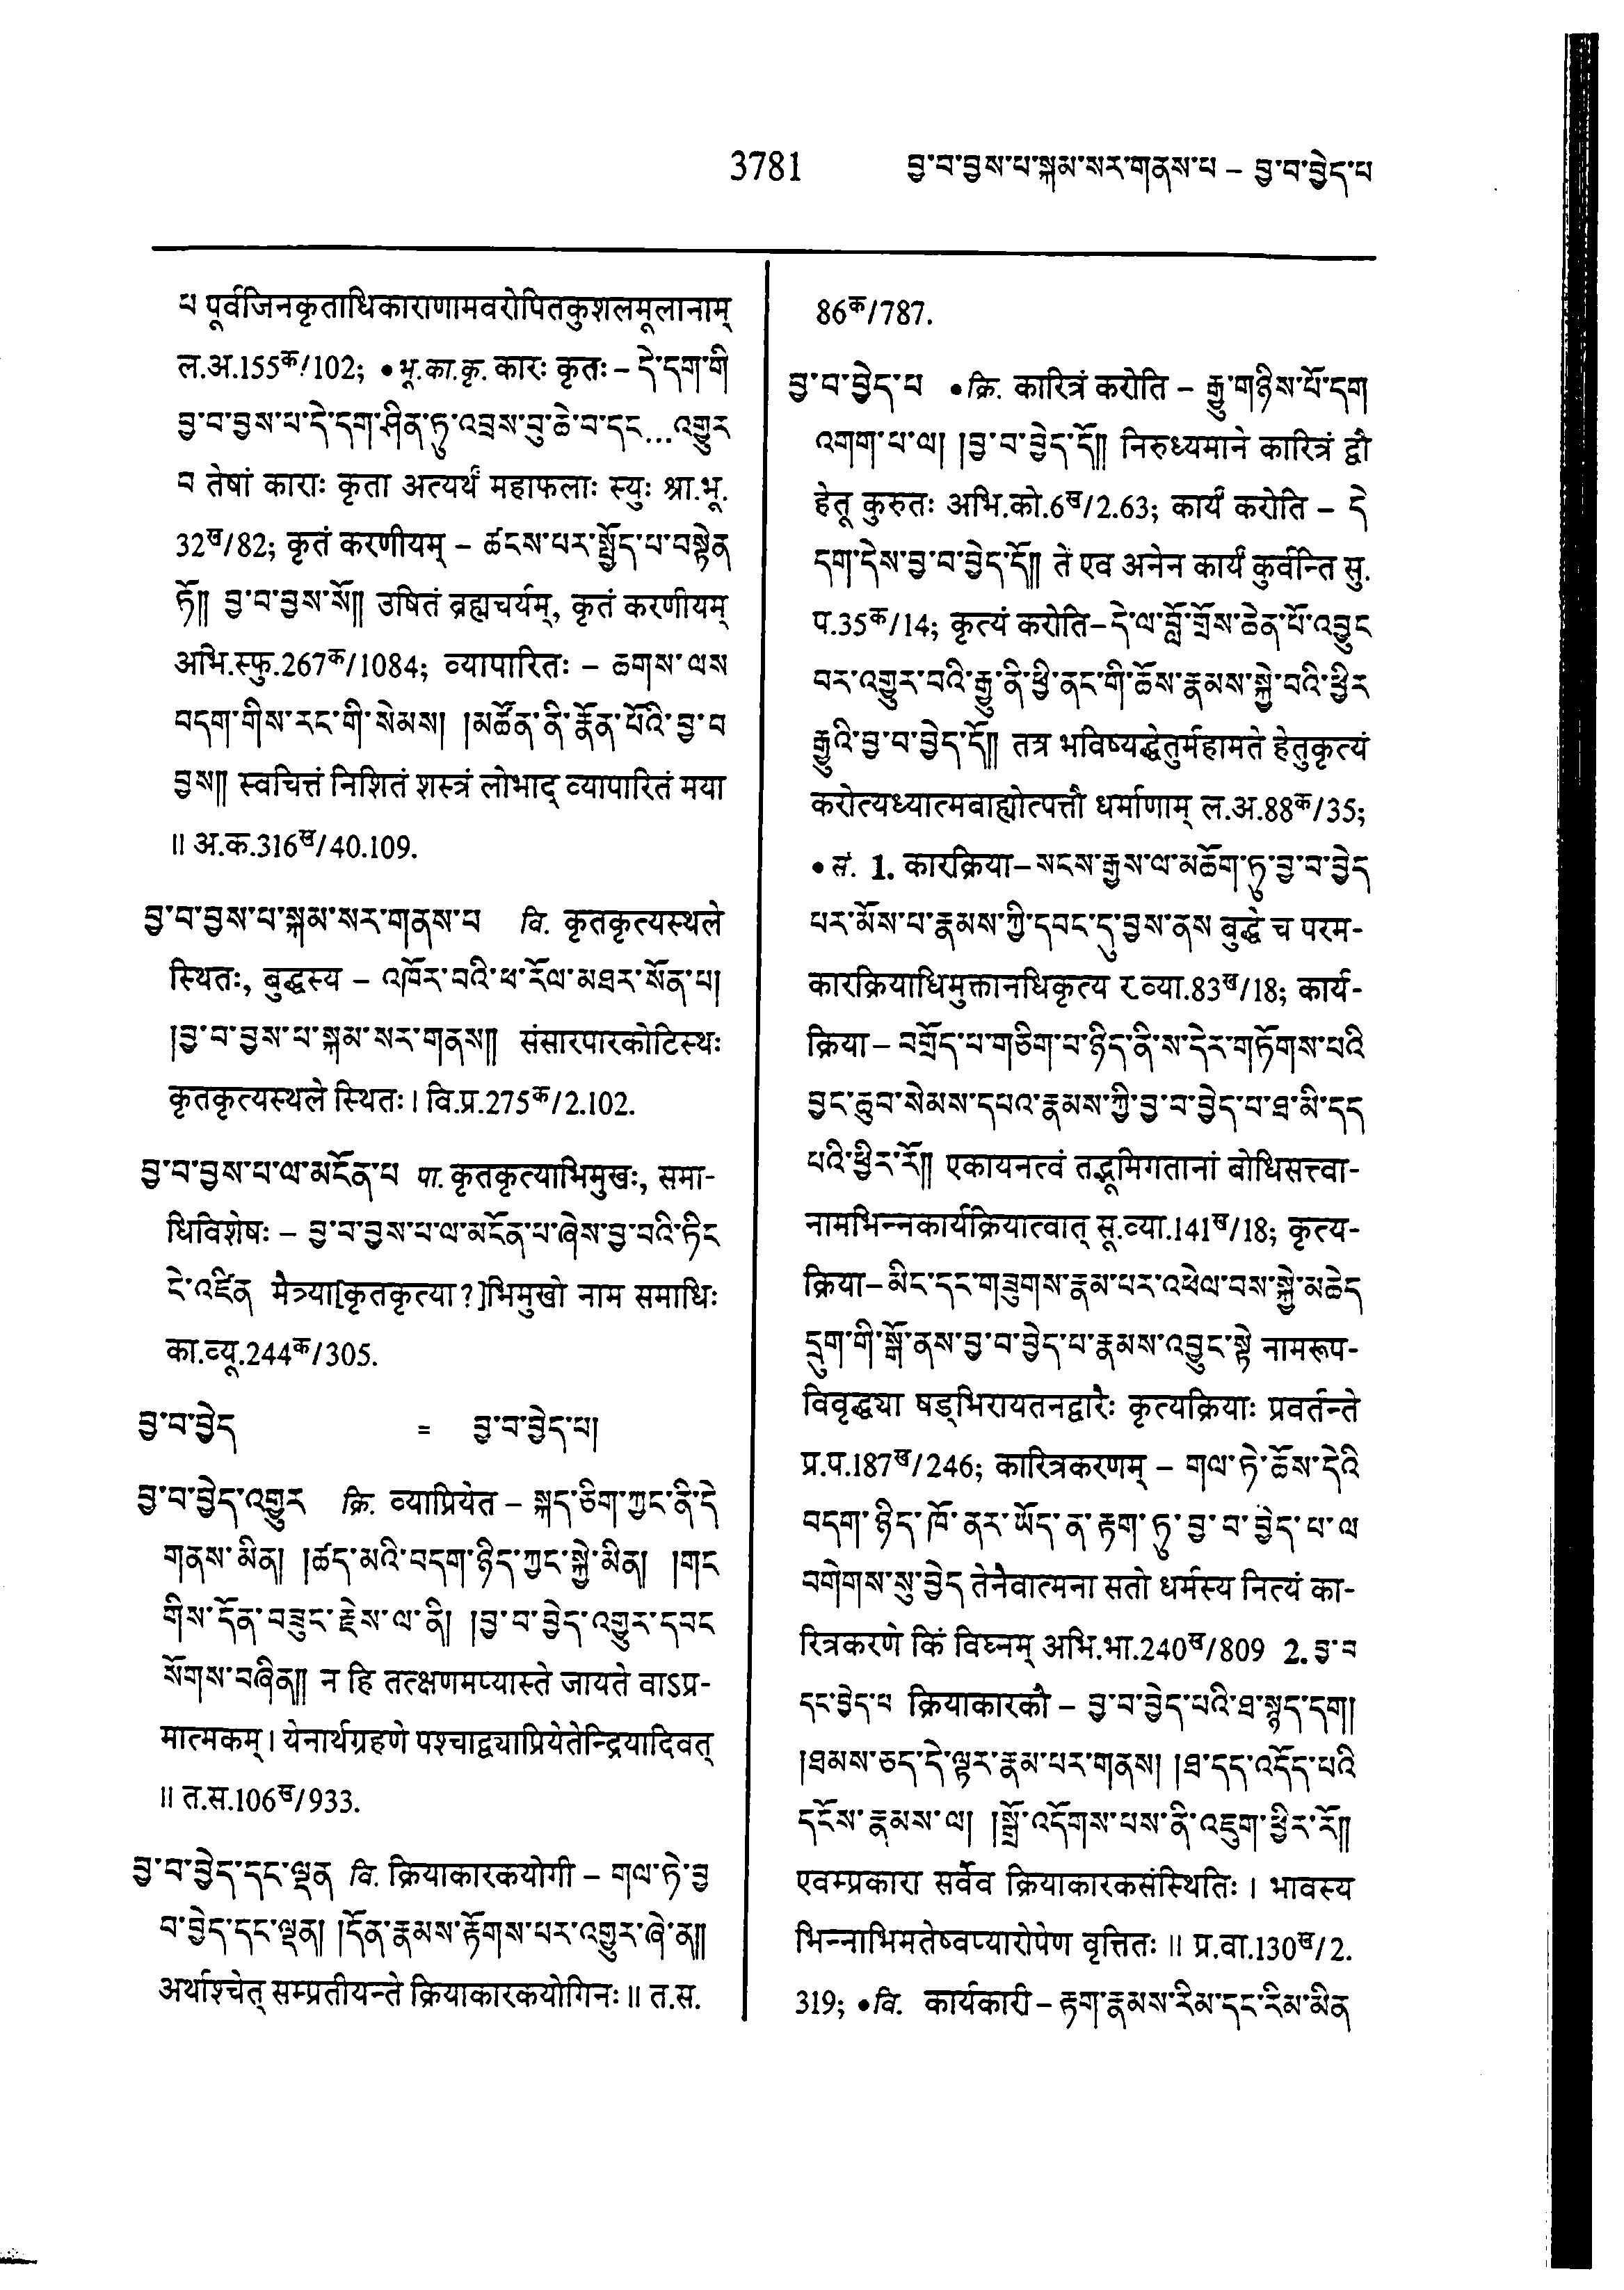 3781 བྱ་བ་བྱས་པ་སྐམ་སར་གནས་པ – བྱ་བ་བྱེད་པ
པ पूर्वजिनकृताधिकाराणामवरोपितकुशलमूलानाम्
ल.अ.155क/102; • भू.का.कृ. कारः कृतः – དེ་དག་གི
བྱ་བ་བྱས་པ་དེ་དག་ཤིན་ཏུ་འབྲས་བུ་ཆེ་བ་དང...འགྱུར
བ तेषां काराः कृता अत्यर्थं महाफलाः स्युः श्रा.भू.
32ख/82; कृतं करणीयम् – ཚངས་པར་སྤྱོད་པ་བསྟེན
ཏོ༎ བྱ་བ་བྱས་སོ༎ उषितं ब्रह्मचर्यम्, कृतं करणीयम्
अभि.स्फु.267क/1084; व्यापारितः – ཆགས་ལས
བདག་གིས་རང་གི་སེམས། །མཚོན་ནི་རྣོན་པོའི་བྱ་བ
བྱས༎ स्वचित्तं निशितं शस्त्रं लोभाद् व्यापारितं मया
॥ अ.क.316ख/40.109.
བྱ་བ་བྱས་པ་སྐམ་སར་གནས་པ वि. कृतकृत्यस्थले
स्थितः, बुद्धस्य – འཁོར་བའི་ཕ་རོལ་མཐར་སོན་པ།
།བྱ་བ་བྱས་པ་སྐམ་སར་གནས༎ संसारपारकोटिस्थः
कृतकृत्यस्थले स्थितः। वि.प्र.275क/2.102.
བྱ་བ་བྱས་པ་ལ་མངོན་པ पा. कृतकृत्याभिमुखः, समा-
धिविशेषः – བྱ་བ་བྱས་པ་ལ་མངོན་པ་ཞེས་བྱ་བའི་ཏིང
ངེ་འཛིན मैत्र्या[कृतकृत्या?]भिमुखो नाम समाधिः
का.व्यू.244क/305.
བྱ་བ་བྱེད = བྱ་བ་བྱེད་པ།
བྱ་བ་བྱེད་འགྱུར क्रि. व्याप्रियेत – སྐད་ཅིག་ཀྱང་ནི་དེ
གནས་མིན། །ཚད་མའི་བདག་ཉིད་ཀྱང་སྐྱེ་མིན། །གང
གིས་དོན་བཟུང་རྗེས་ལ་ནི། །བྱ་བ་བྱེད་འགྱུར་དབང
སོགས་བཞིན༎ न हि तत्क्षणमप्यास्ते जायते वाऽप्र-
मात्मकम्। येनार्थग्रहणे पश्चाद्व्याप्रियेतेन्द्रियादिवत्
॥ त.स.106ख/933.
བྱ་བ་བྱེད་དང་ལྡན वि. क्रियाकारकयोगी – གལ་ཏེ་བྱ
བ་བྱེད་དང་ལྡན། །དོན་རྣམས་རྟོགས་པར་འགྱུར་ཞེ་ན༎
अर्थाश्चेत् सम्प्रतीयन्ते क्रियाकारकयोगिनः॥ त.स.
86क/787.
བྱ་བ་བྱེད་པ •क्रि. कारित्रं करोति – རྒྱུ་གཉིས་པོ་དག
འགག་པ་ལ། །བྱ་བ་བྱེད་དོ༎ निरुध्यमाने कारित्रं द्वौ
हेतू कुरुतः अभि.को.6ख/2.63; कार्यं करोति – དེ
དག་དེས་བྱ་བ་བྱེད་དོ༎ ते एव अनेन कार्यं कुर्वन्ति सु.
प.35क/14; कृत्यं करोति–དེ་ལ་བློ་གྲོས་ཆེན་པོ་འབྱུང
བར་འགྱུར་བའི་རྒྱུ་ནི་ཕྱི་ནང་གི་ཆོས་རྣམས་སྐྱེ་བའི་ཕྱིར
རྒྱུའི་བྱ་བ་བྱེད་དོ༎ तत्र भविष्यद्धेतुर्महामते हेतुकृत्यं
करोत्यध्यात्मबाह्योत्पत्तौ धर्माणाम् ल.अ.88क/35;
• सं. 1. कारक्रिया–སངས་རྒྱས་ལ་མཆོག་ཏུ་བྱ་བ་བྱེད
པར་མོས་པ་རྣམས་ཀྱི་དབང་དུ་བྱས་ནས बुद्धे च परम-
कारक्रियाधिमुक्तानधिकृत्य र.व्या.83ख/18; कार्य-
क्रिया – བགྲོད་པ་གཅིག་པ་ཉིད་ནི་ས་དེར་གཏོགས་པའི
བྱང་ཆུབ་སེམས་དཔའ་རྣམས་ཀྱི་བྱ་བ་བྱེད་པ་ཐ་མི་དད
པའི་ཕྱིར་རོ༎ एकायनत्वं तद्भूमिगतानां बोधिसत्त्वा-
नामभिन्नकार्यक्रियात्वात् सू.व्या.141ख/18; कृत्य-
क्रिया–མིང་དང་གཟུགས་རྣམ་པར་འཕེལ་བས་སྐྱེ་མཆེད
དྲུག་གི་སྒོ་ནས་བྱ་བ་བྱེད་པ་རྣམས་འབྱུང་སྟེ नामरूप-
विवृद्ध्या षड्भिरायतनद्वारैः कृत्यक्रियाः प्रवर्तन्ते
प्र.प.187ख/246; कारित्रकरणम् – གལ་ཏེ་ཆོས་དེའི
བདག་ཉིད་ཁོ་ནར་ཡོད་ན་རྟག་ཏུ་བྱ་བ་བྱེད་པ་ལ
བགེགས་སུ་བྱེད तेनैवात्मना सतो धर्मस्य नित्यं का-
रित्रकरणे किं विघ्नम् अभि.भा.240ख/809 2. བྱ་བ
དང་བྱེད་པ क्रियाकारकौ – བྱ་བ་བྱེད་པའི་ཐ་སྙད་དག།
།ཐམས་ཅད་དེ་ལྟར་རྣམ་པར་གནས། །ཐ་དད་འདོད་པའི
དངོས་རྣམས་ལ། །སྒྲོ་འདོགས་པས་ནི་འཇུག་ཕྱིར་རོ༎
एवम्प्रकारा सर्वैव क्रियाकारकसंस्थितिः। भावस्य
भिन्नाभिमतेष्वप्यारोपेण वृत्तितः॥ प्र.वा.130ख/2.
319; •वि. कार्यकारी – རྟག་རྣམས་རིམ་དང་རིམ་མིན